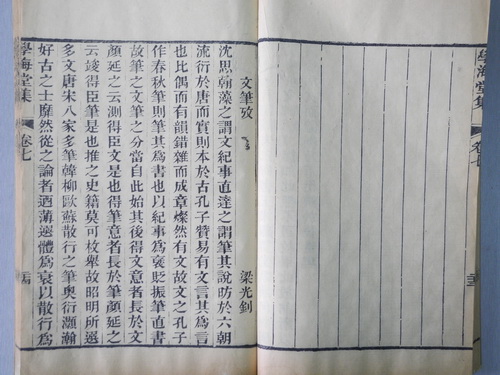 學海堂集
卷七
文筆攷
梁光釗
沈思翰藻之謂文紀事直達之謂筆其說昉於六朝
流衍於唐而實則本於古孔子贊易有文言其為言
也比偶而有韻錯雜而成章燦然有文故文之孔子
作春秋筆則筆其為書也以紀事為褒貶振筆直書
故筆之文筆之分當自此始其後得文意者長於文
顏延之云測得臣文是也得筆意者長於筆顏延之
云竣得臣筆是也推之史籍莫可枚舉故昭明所選
多文唐宋八家多筆韓柳歐蘇散行之筆奧衍灝瀚
好古之士靡然從之論者迺薄選體為衰以散行為
學海堂集
卷七